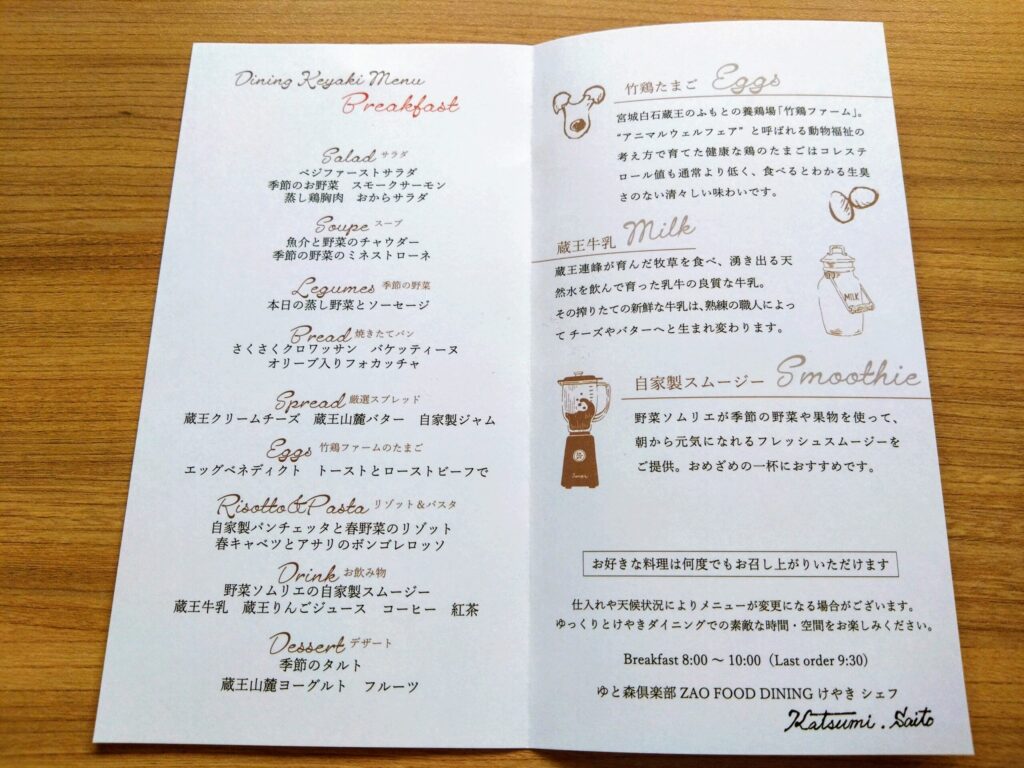 Dining Keyaki Menu
Breakfast
Salad サラダ
ベジファーストサラダ
季節のお野菜　スモークサーモン
蒸し鶏胸肉　おからサラダ
Soupe スープ
魚介と野菜のチャウダー
季節の野菜のミネストローネ
Legumes 季節の野菜
本日の蒸し野菜とソーセージ
Bread 焼きたてパン
さくさくクロワッサン　バケッティーヌ
オリーブ入りフォカッチャ
Spread 厳選スプレッド
蔵王クリームチーズ　蔵王山麓バター　自家製ジャム
Eggs 竹鶏ファームのたまご
エッグベネディクト　トーストとローストビーフで
Risotto&Pasta リゾット＆パスタ
自家製パンチェッタと春野菜のリゾット
春キャベツとアサリのボンゴレロッソ
Drink お飲み物
野菜ソムリエの自家製スムージー
蔵王牛乳　蔵王りんごジュース　コーヒー　紅茶
Dessert デザート
季節のタルト
蔵王山麓ヨーグルト　フルーツ
竹鶏たまご Eggs
宮城白石蔵王のふもとの養鶏場「竹鶏ファーム」。
“アニマルウェルフェア” と呼ばれる動物福祉の
考え方で育てた健康な鶏のたまごはコレステ
ロール値も通常より低く、食べるとわかる生臭
さのない清々しい味わいです。
蔵王牛乳 Milk
蔵王連峰が育んだ牧草を食べ、湧き出る天
然水を飲んで育った乳牛の良質な牛乳。
その搾りたての新鮮な牛乳は、熟練の職人によっ
て チーズやバターへと生まれ変わります。
MILK
自家製スムージー Smoothie
野菜ソムリエが季節の野菜や果物を使って、
朝から元気になれるフレッシュスムージーを
ご提供。おめざめの一杯におすすめです。
お好きな料理は何度でもお召し上がりいただけます
仕入れや天候状況によりメニューが変更になる場合がございます。
ゆっくりとけやきダイニングでの素敵な時間・空間をお楽しみください。
Breakfast 8:00 〜 10:00（Last order 9:30）
ゆと森倶楽部 ZAO FOOD DINING けやき シェフ
Katsumi . Saito